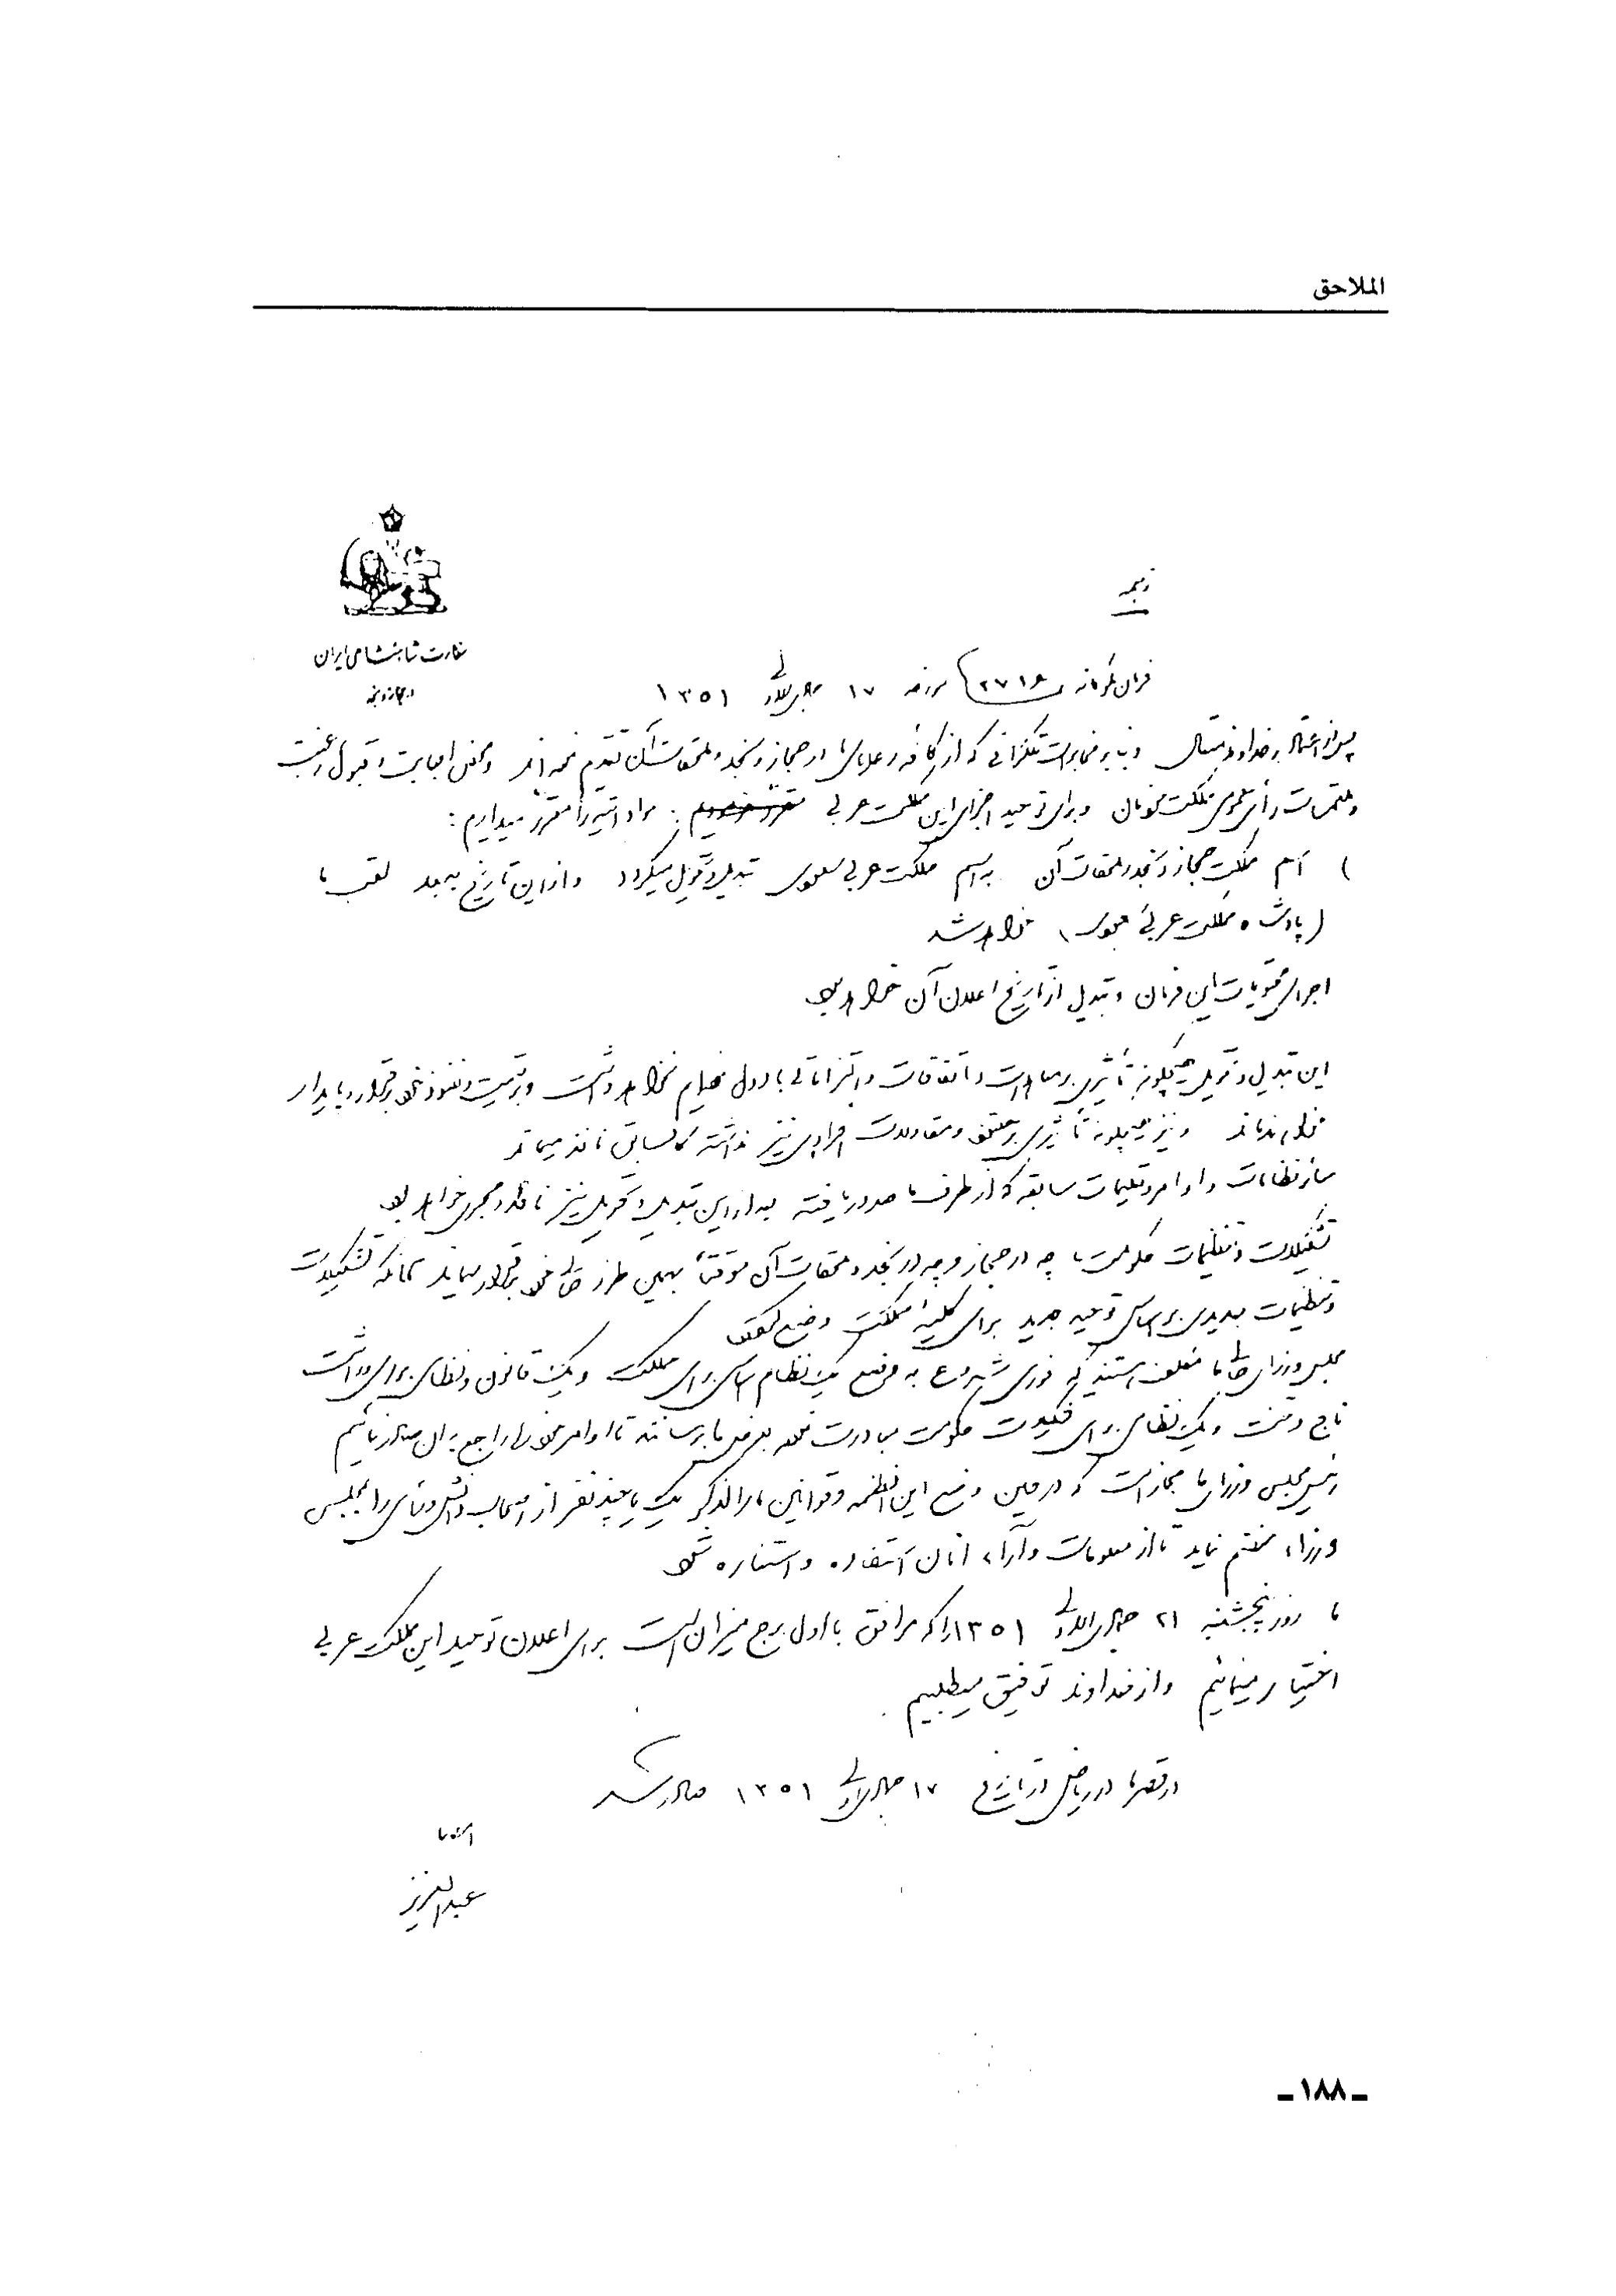 الملاحق
سفارت شاهنشاهی ایران
در حجاز و نجد
ترجمه
فرمان ملوکانه ۲۷۱۶ مورخه ۱۷ جمادی الاولی ۱۳۵۱
پس از اعتماد بخداوند متعال و بنا بر مخابرات تلگرافی که از کافه رعایای ما در حجاز و نجد و ملحقات آن تقدیم نموده اند و محض اجابت و قبول رغبت
و ملتمسات رأی عمومی مملکت خودمان و برای توحید اجزای این مملکت عربی مواد آتیه را مقرر میداریم :
۱) اسم مملکت حجاز و نجد و ملحقات آن به اسم مملکت عربی سعودی تبدیل و تحویل میگردد و از این تاریخ به بعد لقب ما
(پادشاه مملکت عربی سعودی) خواهد شد
اجرای محتویات این فرمان و تبدیل از تاریخ اعلان آن خواهد بود
این تبدیل و تحویل هیچگونه تأثیری بر معاهدات و اتفاقات و التزاماتی با دول خارجه نخواهد داشت و بر قیمت و نفوذ خود برقرار و پایدار
خواهند ماند و نیز هیچگونه تأثیری بر عقود و مقاولات افرادی نیز نداشته کما سابق نافذ میماند
سایر نظامات و اوامر و تعلیمات سابقه که از طرف ما صدور یافته بعد از این تبدیل و تحویل نیز نافذ و مجری خواهد بود
تشکیلات و تنظیمات حکومت ما چه در حجاز و چه در نجد و ملحقات آن موقتاً بهمین طرز حالی خود برقرار میماند تا آنکه تشکیلات
و تنظیمات جدیدی بر اساس توحید جدید برای کلیه مملکت وضع شود
مجلس وزرای حالی ما مکلف هستند که فوری شروع به وضع یک نظام اساسی برای مملکت و یک قانون و نظامی برای وراثت
تاج و تخت و یک نظامی برای تشکیلات حکومت مبادرت نموده بعرض ما برسانند تا اوامر خود را راجع بآن صادر نمائیم
رئیس مجلس وزرای ما مجاز است که در حین وضع این انظمه و قوانین مار الذکر یک یا چند نفر از اصحاب دانش و رأی را بمجلس
وزراء منضم نماید تا از معلومات و آراء آنان استفاده و استناره شود
ما روز پنجشنبه ۲۱ جمادی الاولی ۱۳۵۱ را که موافق با اول برج میزان است برای اعلان توحید این مملکت عربی
اختیار مینمائیم و از خداوند توفیق میطلبیم
در قصر ما در ریاض در تاریخ ۱۷ جمادی الاولی ۱۳۵۱ صادر شد
امضاء
عبدالعزیز
ـ ١٨٨ ـ